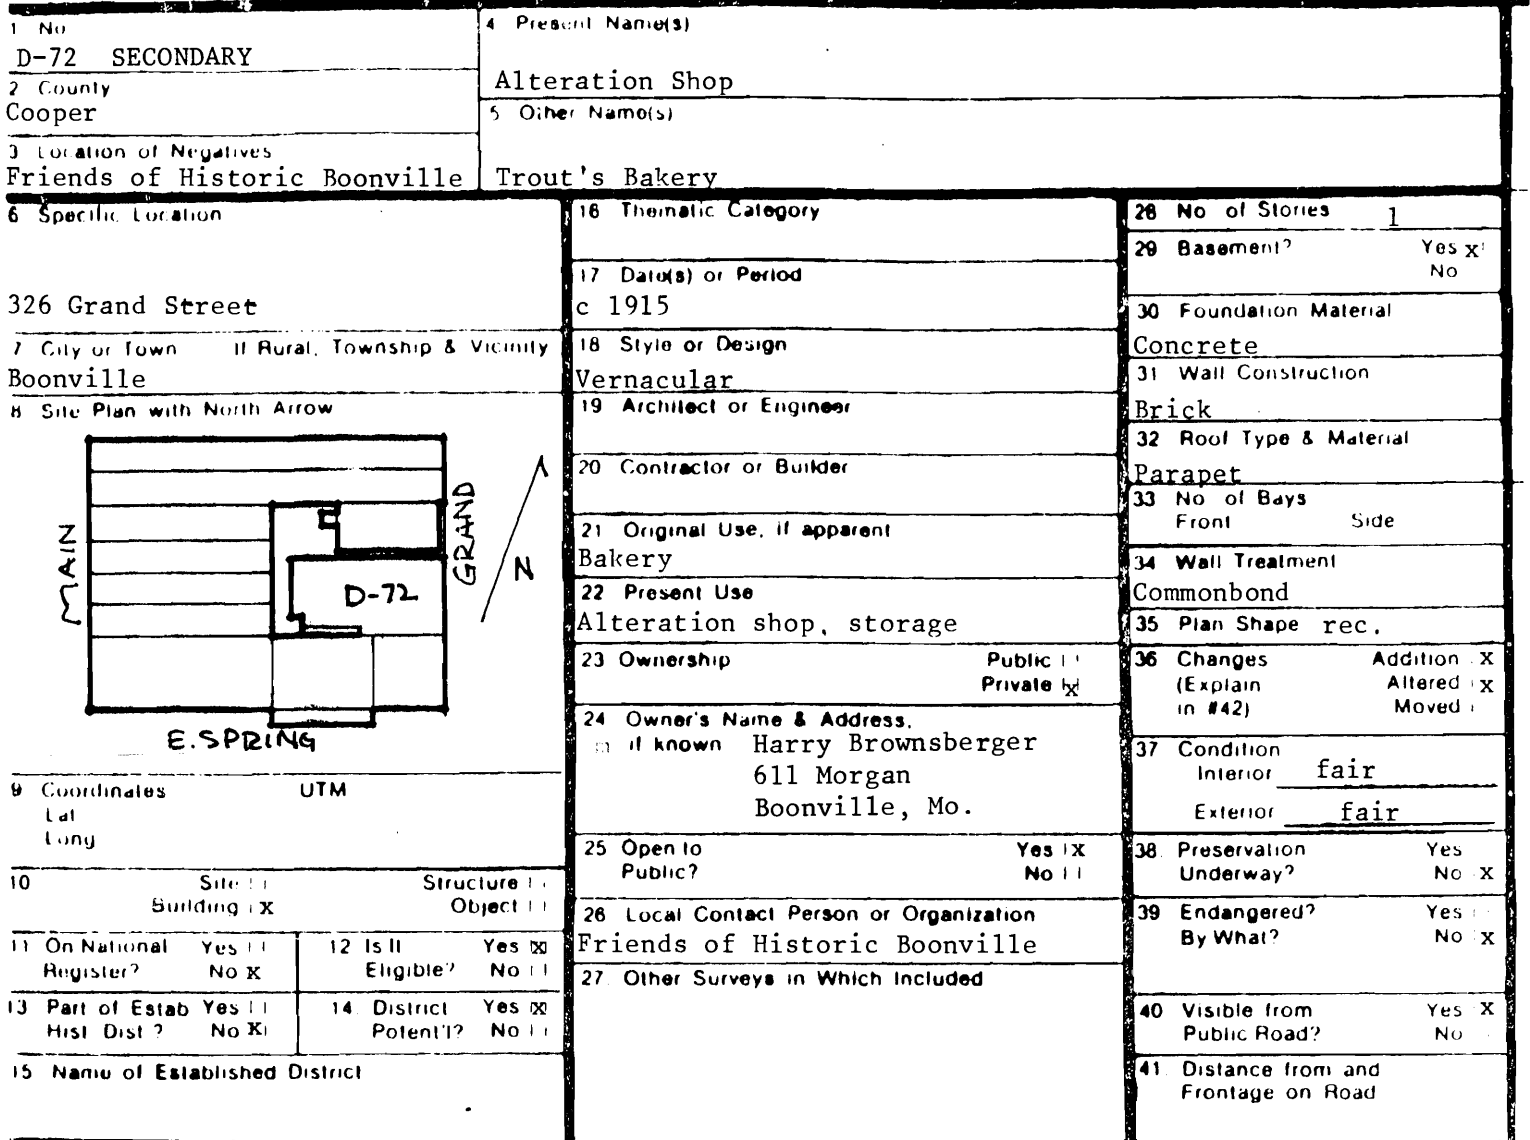 1 No
D-72 SECONDARY
2 County
Cooper
3 Location of Negatives
Friends of Historic Boonville
4 Present Name(s)
Alteration Shop
5 Other Name(s)
Trout's Bakery
6 Specific Location
326 Grand Street
7 City or Town If Rural, Township & Vicinity
Boonville
8 Site Plan with North Arrow
MAIN
GRAND
D-72
N
E. SPRING
9 Coordinates UTM
Lat
Long
10 Site Structure
Building X Object
11 On National Yes
Register? No X
12 Is It Yes X
Eligible? No
13 Part of Estab Yes
Hist Dist ? No X
14 District Yes X
Potent'l? No
15 Name of Established District
16 Thematic Category
17 Date(s) or Period
c 1915
18 Style or Design
Vernacular
19 Architect or Engineer
20 Contractor or Builder
21 Original Use, if apparent
Bakery
22 Present Use
Alteration shop, storage
23 Ownership Public
Private X
24 Owner's Name & Address,
if known Harry Brownsberger
611 Morgan
Boonville, Mo.
25 Open to Yes X
Public? No
26 Local Contact Person or Organization
Friends of Historic Boonville
27 Other Surveys in Which Included
28 No of Stories 1
29 Basement? Yes X
No
30 Foundation Material
Concrete
31 Wall Construction
Brick
32 Roof Type & Material
Parapet
33 No of Bays
Front Side
34 Wall Treatment
Commonbond
35 Plan Shape rec.
36 Changes Addition X
(Explain Altered X
in #42) Moved
37 Condition
Interior fair
Exterior fair
38 Preservation Yes
Underway? No X
39 Endangered? Yes
By What? No X
40 Visible from Yes X
Public Road? No
41 Distance from and
Frontage on Road